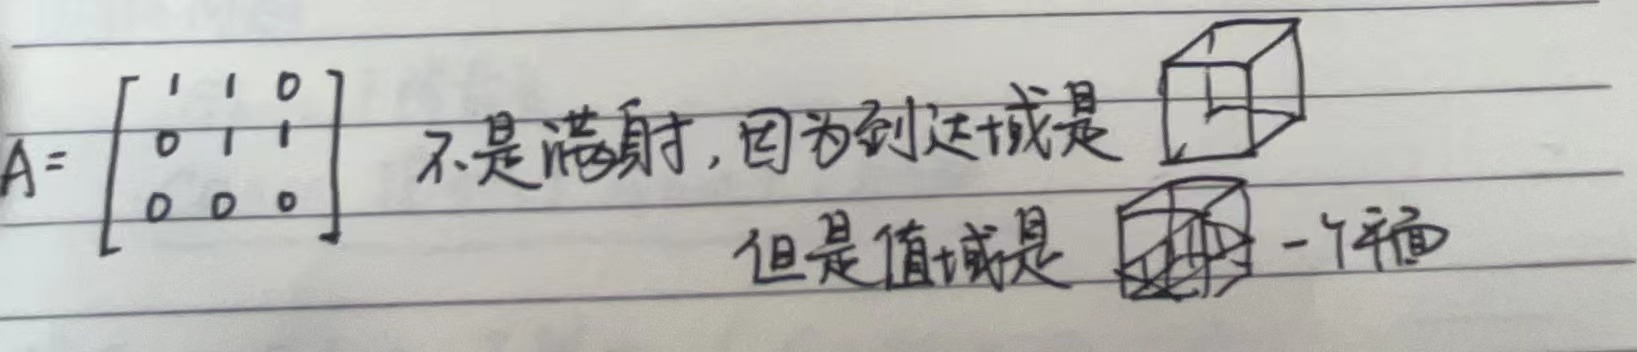 A = [1 1 0
0 1 1
0 0 0] 不是满射，因为到达域是
但是值域是 一个平面